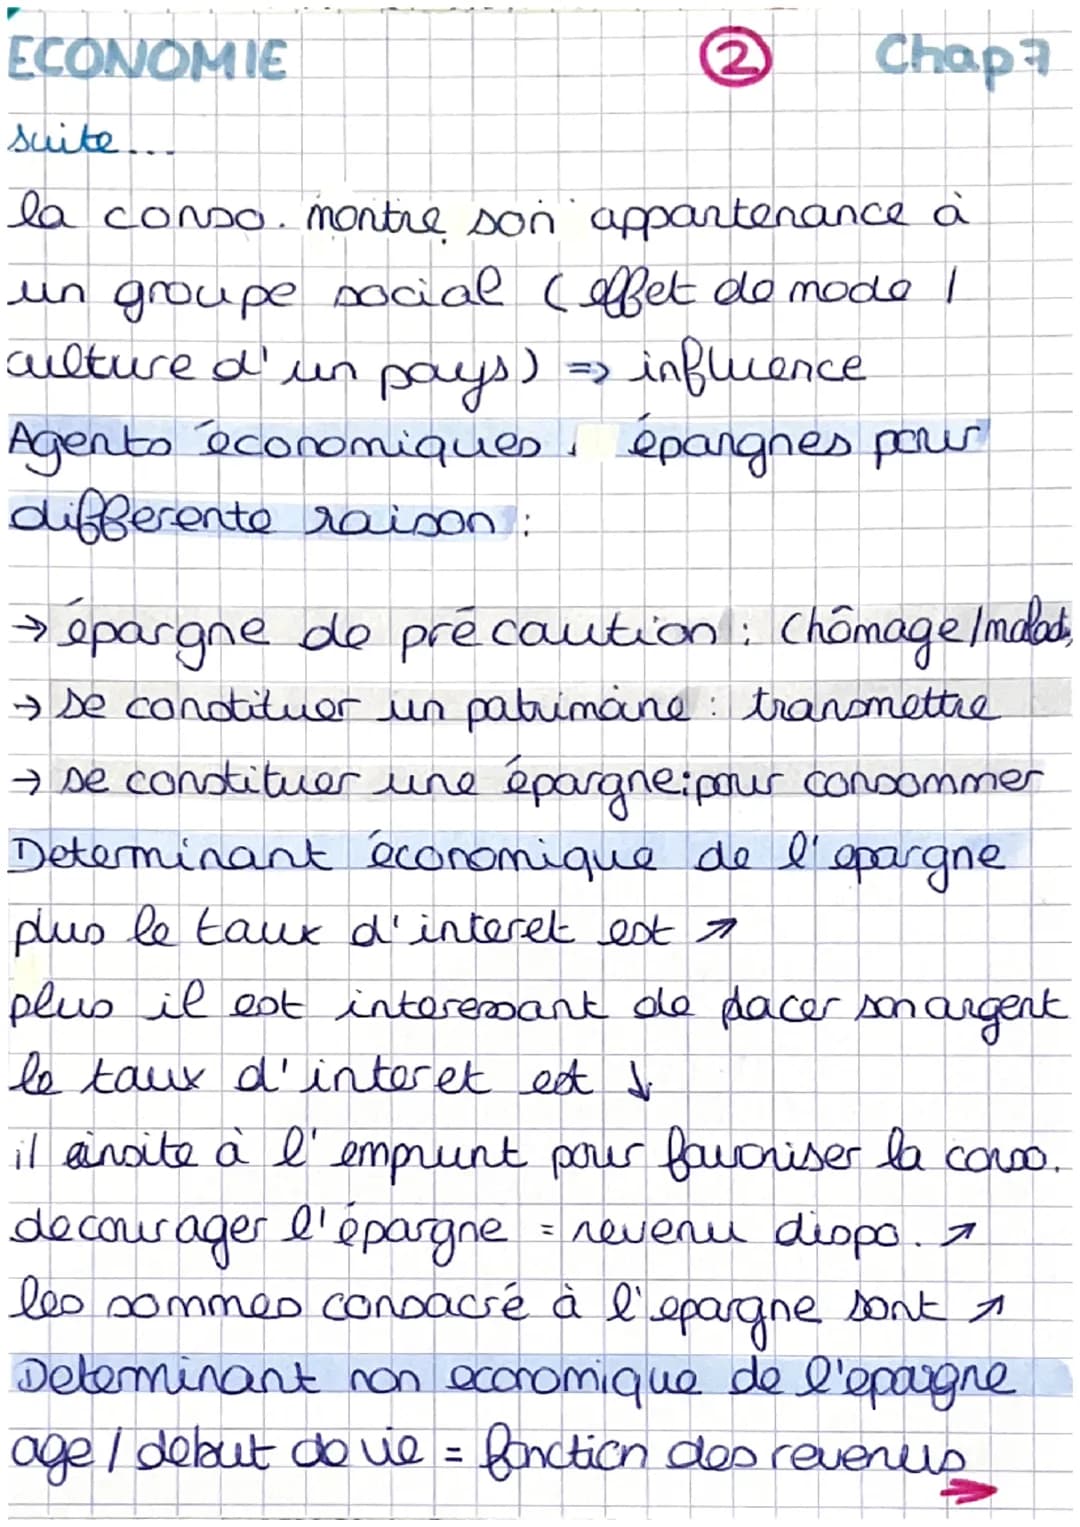 ECONOMIE ② Chap 7
suite...
la conso. montre son appartenance à
un groupe social (effet de mode /
culture d'un pays) => influence
Agents économiques, épargnes pour
differente raison :
→ épargne de précaution : Chômage/malad.
→ se constituer un patrimoine : transmettre
→ se constituer une épargne : pour consommer
Determinant économique de l'epargne
plus le taux d'interet est ↗
plus il est interessant de placer son argent
le taux d'interet est ↓
il insite à l'emprunt pour favoriser la conso.
decourager l'épargne = revenu dispo. ↗
les sommes consacré à l'epargne sont ↗
Determinant non economique de l'epargne
age / debut de vie = fonction des revenus →